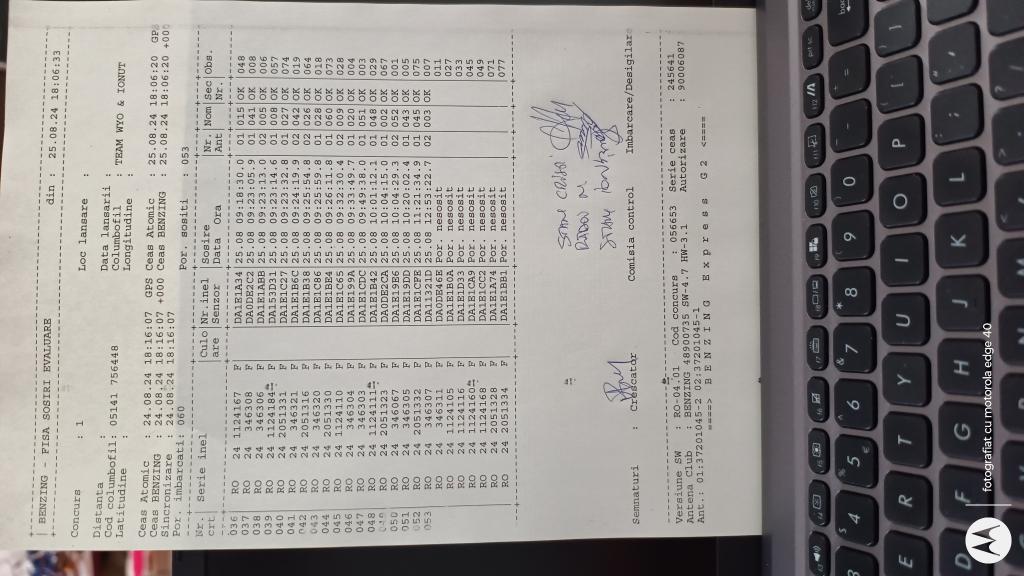 BENZING - FISA SOSIRI EVALUARE din : 25.08.24 18:06:33
Concurs : 1 Loc lansare :
Distanta : Data lansarii :
Cod columbofil: 05141 756448 Columbofil : TEAM WTO & IONUT
Latitudine : Longitudine :
Ceas Atomic : 24.08.24 18:16:07 GPS Ceas Atomic : 25.08.24 18:06:20 GPS
Ceas BENZING : 24.08.24 18:16:07 +000 Ceas BENZING : 25.08.24 18:06:20 +000
Sincronizare : 24.08.24 18:16:07
Por. imbarcati: 060 Por. sositi : 053
Nr. Serie inel Culo Nr.inel Sosire Nr Nom Sec Obs.
crt. are Senzor Data Ora Ant Nr.
036 RO 24 1124167 F DA1E1A34 25.08 09:18:30.0 01 015 OK 048
037 RO 24 346308 F DA0DB2C2 25.08 09:23:05.9 01 041 OK 008
038 RO 24 346306 F DA1E1ABB 25.08 09:23:13.0 02 005 OK 006
039 RO 24 1124184 F DA153D31 25.08 09:23:14.6 01 008 OK 057
040 RO 24 2051331 F DA1E1C27 25.08 09:23:32.8 01 027 OK 074
041 RO 24 346321 F DA1E1B6C 25.08 09:24:19.9 02 042 OK 019
042 RO 24 2051316 F DA1E1B31 25.08 09:25:54.9 02 026 OK 064
043 RO 24 346320 F DA1E1C86 25.08 09:25:59.8 01 028 OK 018
044 RO 24 2051330 F DA1E1BE4 25.08 09:26:11.8 01 060 OK 073
045 RO 24 1124110 F DA1E1C65 25.08 09:32:30.4 02 009 OK 028
046 RO 24 346304 F DA1E19EA 25.08 09:33:49.7 01 020 OK 004
047 RO 24 346303 F DA1E1CDC 25.08 09:49:38.9 01 051 OK 003
048 RO 24 1124111 F DA1E1B42 25.08 10:01:12.1 01 048 OK 029
049 RO 24 2051323 F DA0DB2CA 25.08 10:04:15.0 01 002 OK 067
050 RO 24 346067 F DA1E19B6 25.08 10:04:29.3 02 052 OK 001
051 RO 24 346305 F DA1E19DD 25.08 10:20:02.4 01 043 OK 005
052 RO 24 2051332 F DA1E1CFE 25.08 11:21:34.9 01 045 OK 075
053 RO 24 346307 F DA11321D 25.08 12:53:22.7 02 003 OK 007
RO 24 346311 F DA0DB46E Por. nesosit 011
RO 24 1124105 F DA1E1BDA Por. nesosit 027
RO 24 1124116 F DA1E1D33 Por. nesosit 033
RO 24 1124160 F DA1E1CA9 Por. nesosit 045
RO 24 1124168 F DA1E1CC2 Por. nesosit 049
RO 24 2051328 F DA1E1A74 Por. nesosit 071
RO 24 2051334 F DA1E1BB1 Por. nesosit 077
Semnaturi : Crescator Comisia control Imbarcare/Desigilare
Versiune SW : RO-04.01 Cod concurs : 056653 Serie ceas : 245641
Antena Club : BENZING 48900735 SW-4.7 HW-3.1 Autorizare : 90006087
Ant.: 01:37201045-2 02:37201045-1
====> B E N Z I N G E x p r e s s G 2 <====
fotografiat cu motorola edge 40